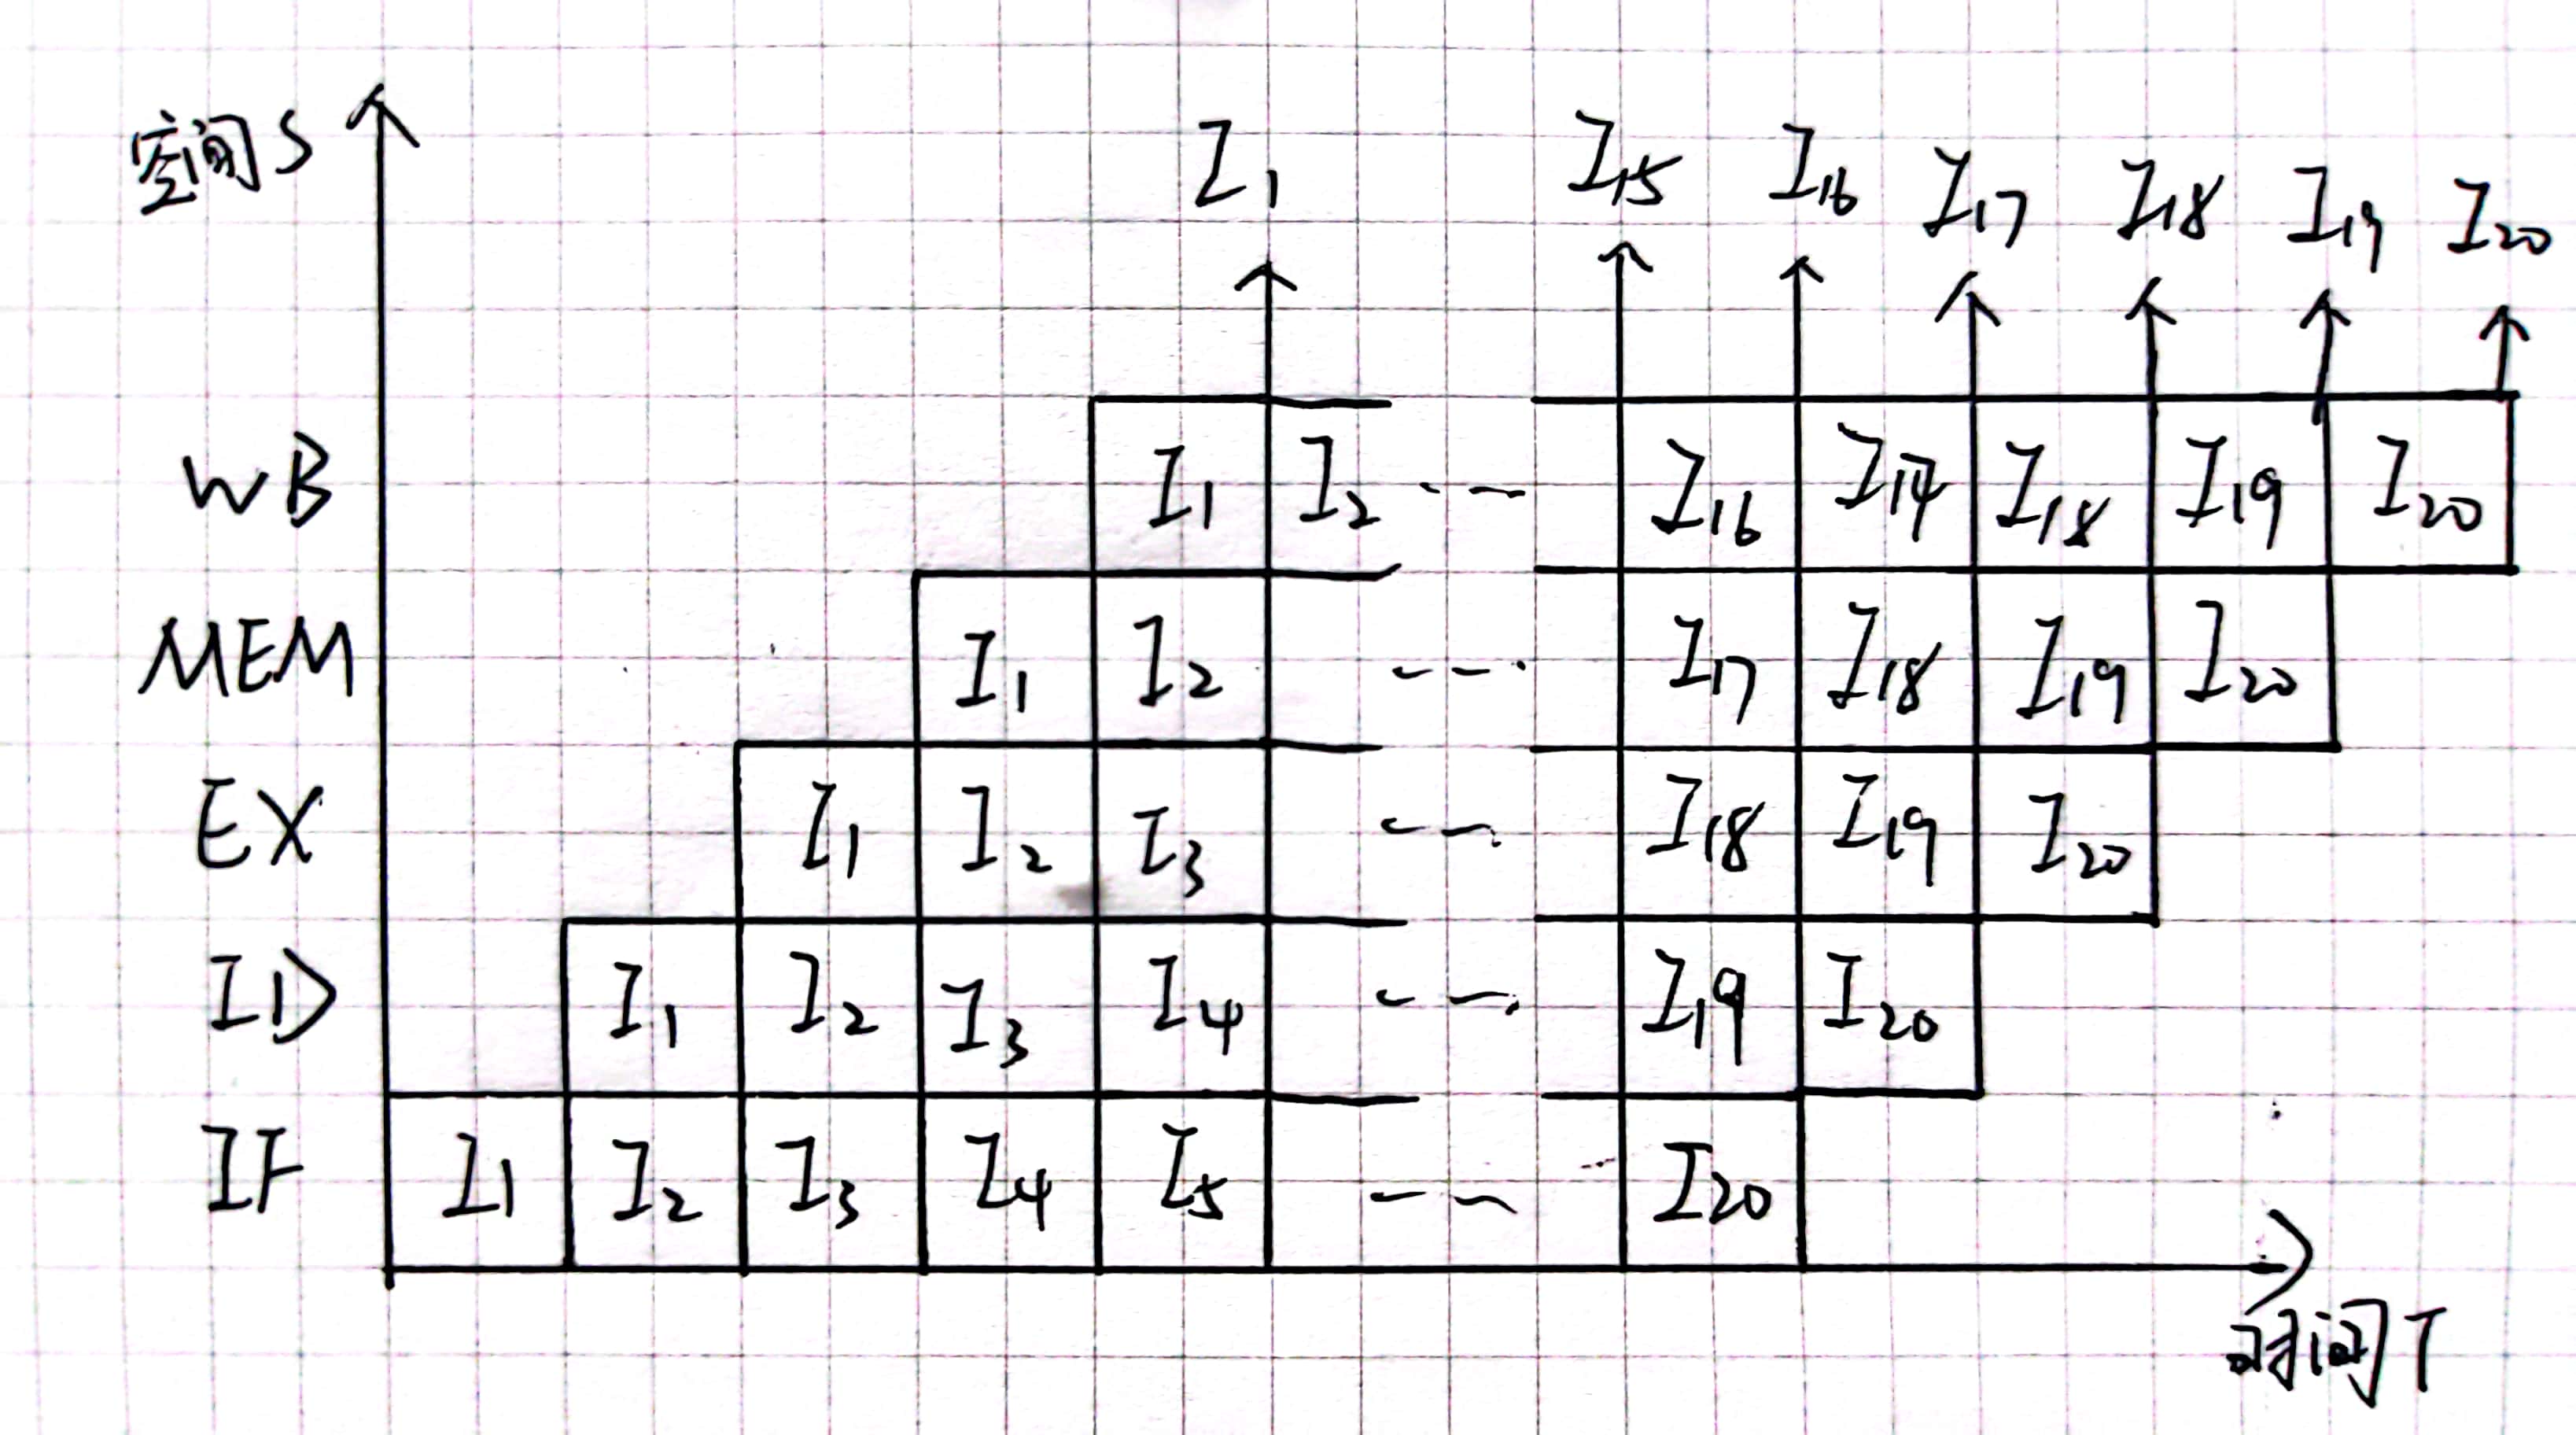 空间S
I₁ I₁₅ I₁₆ I₁₇ I₁₈ I₁₉ I₂₀
WB I₁ I₂ --- I₁₆ I₁₇ I₁₈ I₁₉ I₂₀
MEM I₁ I₂ --- I₁₇ I₁₈ I₁₉ I₂₀
EX I₁ I₂ I₃ --- I₁₈ I₁₉ I₂₀
ID I₁ I₂ I₃ I₄ --- I₁₉ I₂₀
IF I₁ I₂ I₃ I₄ I₅ --- I₂₀
时间T